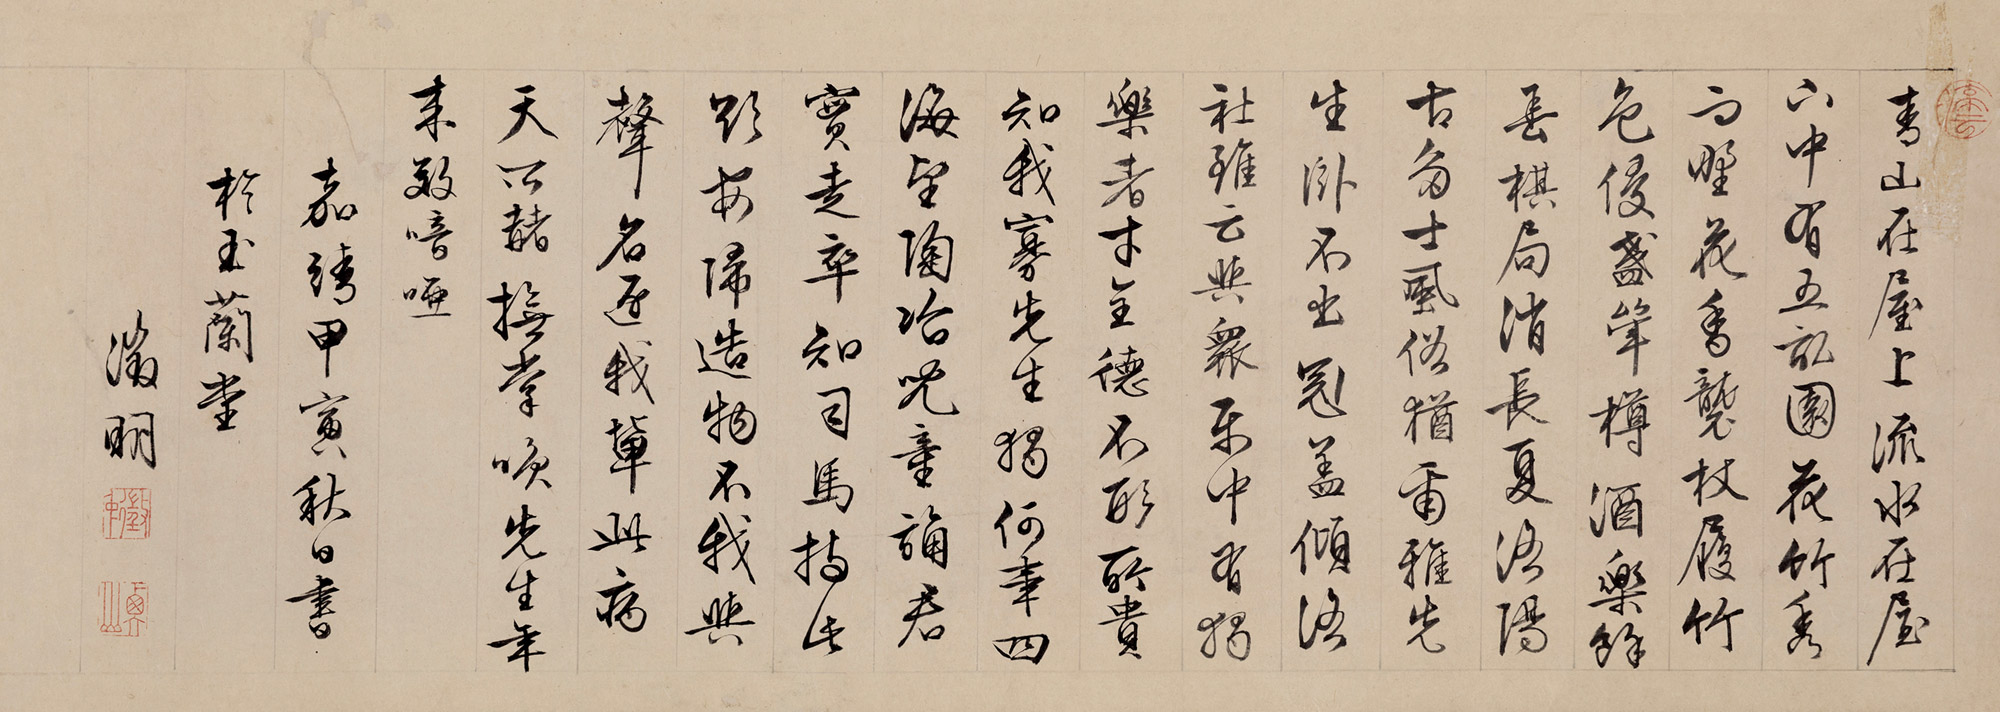 停雲
青山在屋上流水在屋
下中有五畝園花竹秀
而野花香襲杖屨竹
色侵盞斝樽酒樂餘
春棋局消長夏洛陽
古多士風俗猶爾雅先
生卧不出冠蓋傾洛
社雖云與眾樂中有獨
樂者才全德不形所貴
知我寡先生獨何事四
海望陶冶兒童誦君
實走卒知司馬持此
欲安歸造物不我與
聲名逐我輩此病
天所赭撫掌咲先生年
來效喑啞
嘉靖甲寅秋日書
於玉蘭堂
徵明
衡山